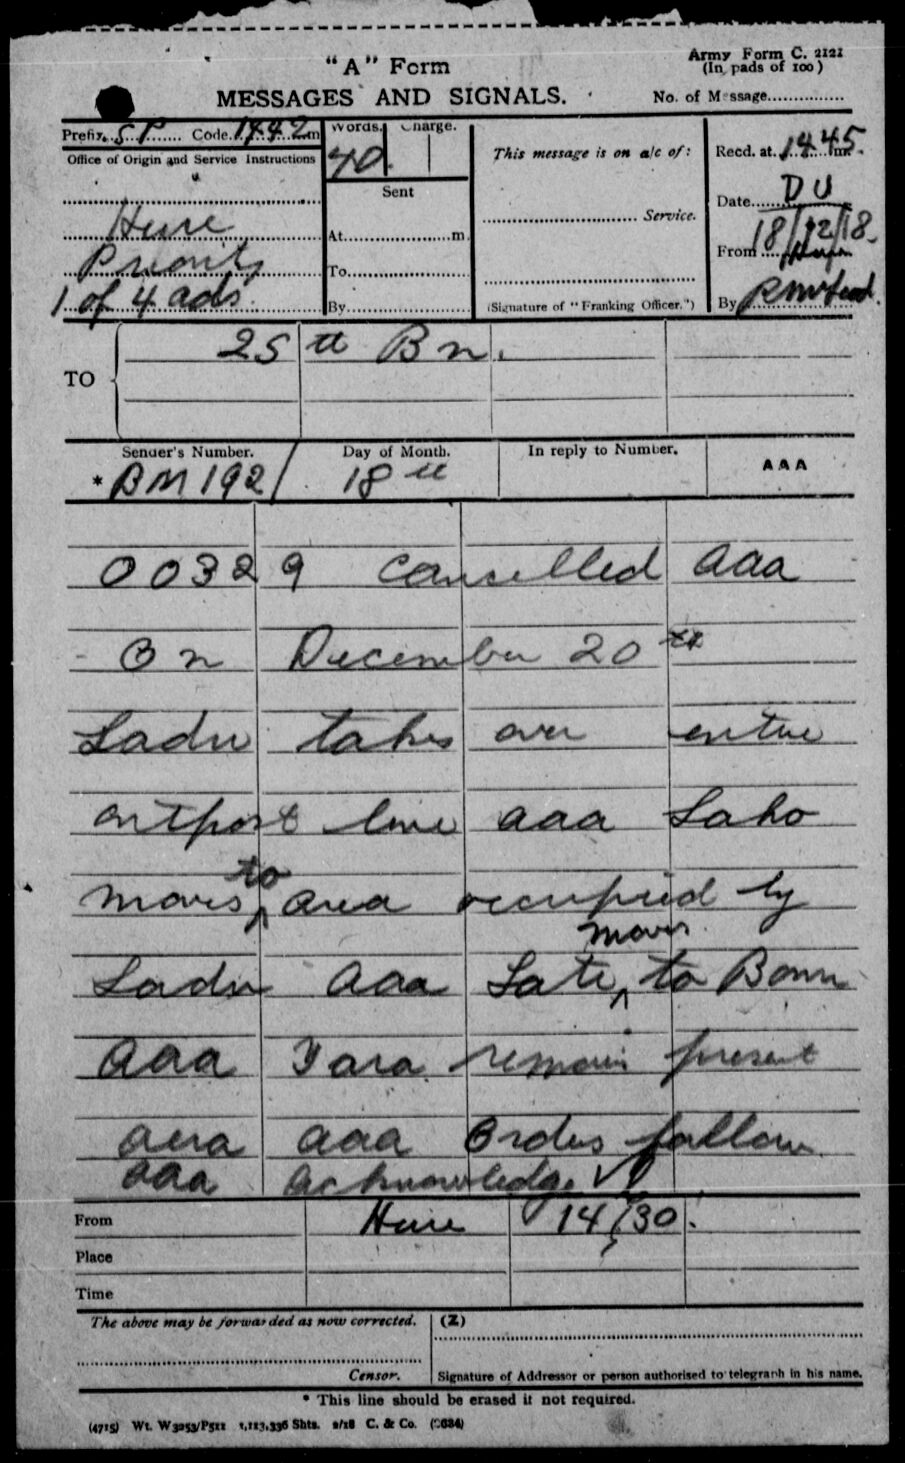 "A" Form
Army Form C. 2121
(In pads of 100)
MESSAGES AND SIGNALS.
No. of Message...............
Prefix SP Code 1442 m
Words. Charge.
40.
This message is on a/c of:
Recd. at 1445.
Office of Origin and Service Instructions
Sent
Date DU
18/12/18.
Huse
At m.
Service.
Priority
To
From
1 of 4 ads.
By
(Signature of "Franking Officer.")
By
TO
25th Bn.
Sender's Number.
Day of Month.
In reply to Number.
AAA
* BM192/
18th
00329 cancelled aaa
On December 20th
Ladu takes over entire
outpost line aaa Laho
moves to area occupied by
Ladu aaa Late moves to Bonn
aaa Yara remain present
area aaa Orders follow
aaa acknowledge
From
Huse 14/30.
Place
Time
The above may be forwarded as now corrected.
(Z)
Censor.
Signature of Addressor or person authorised to telegraph in his name.
* This line should be erased if not required.
(4715) Wt. W3253/P511 1,113,336 Shts. 2/18 C. & Co.